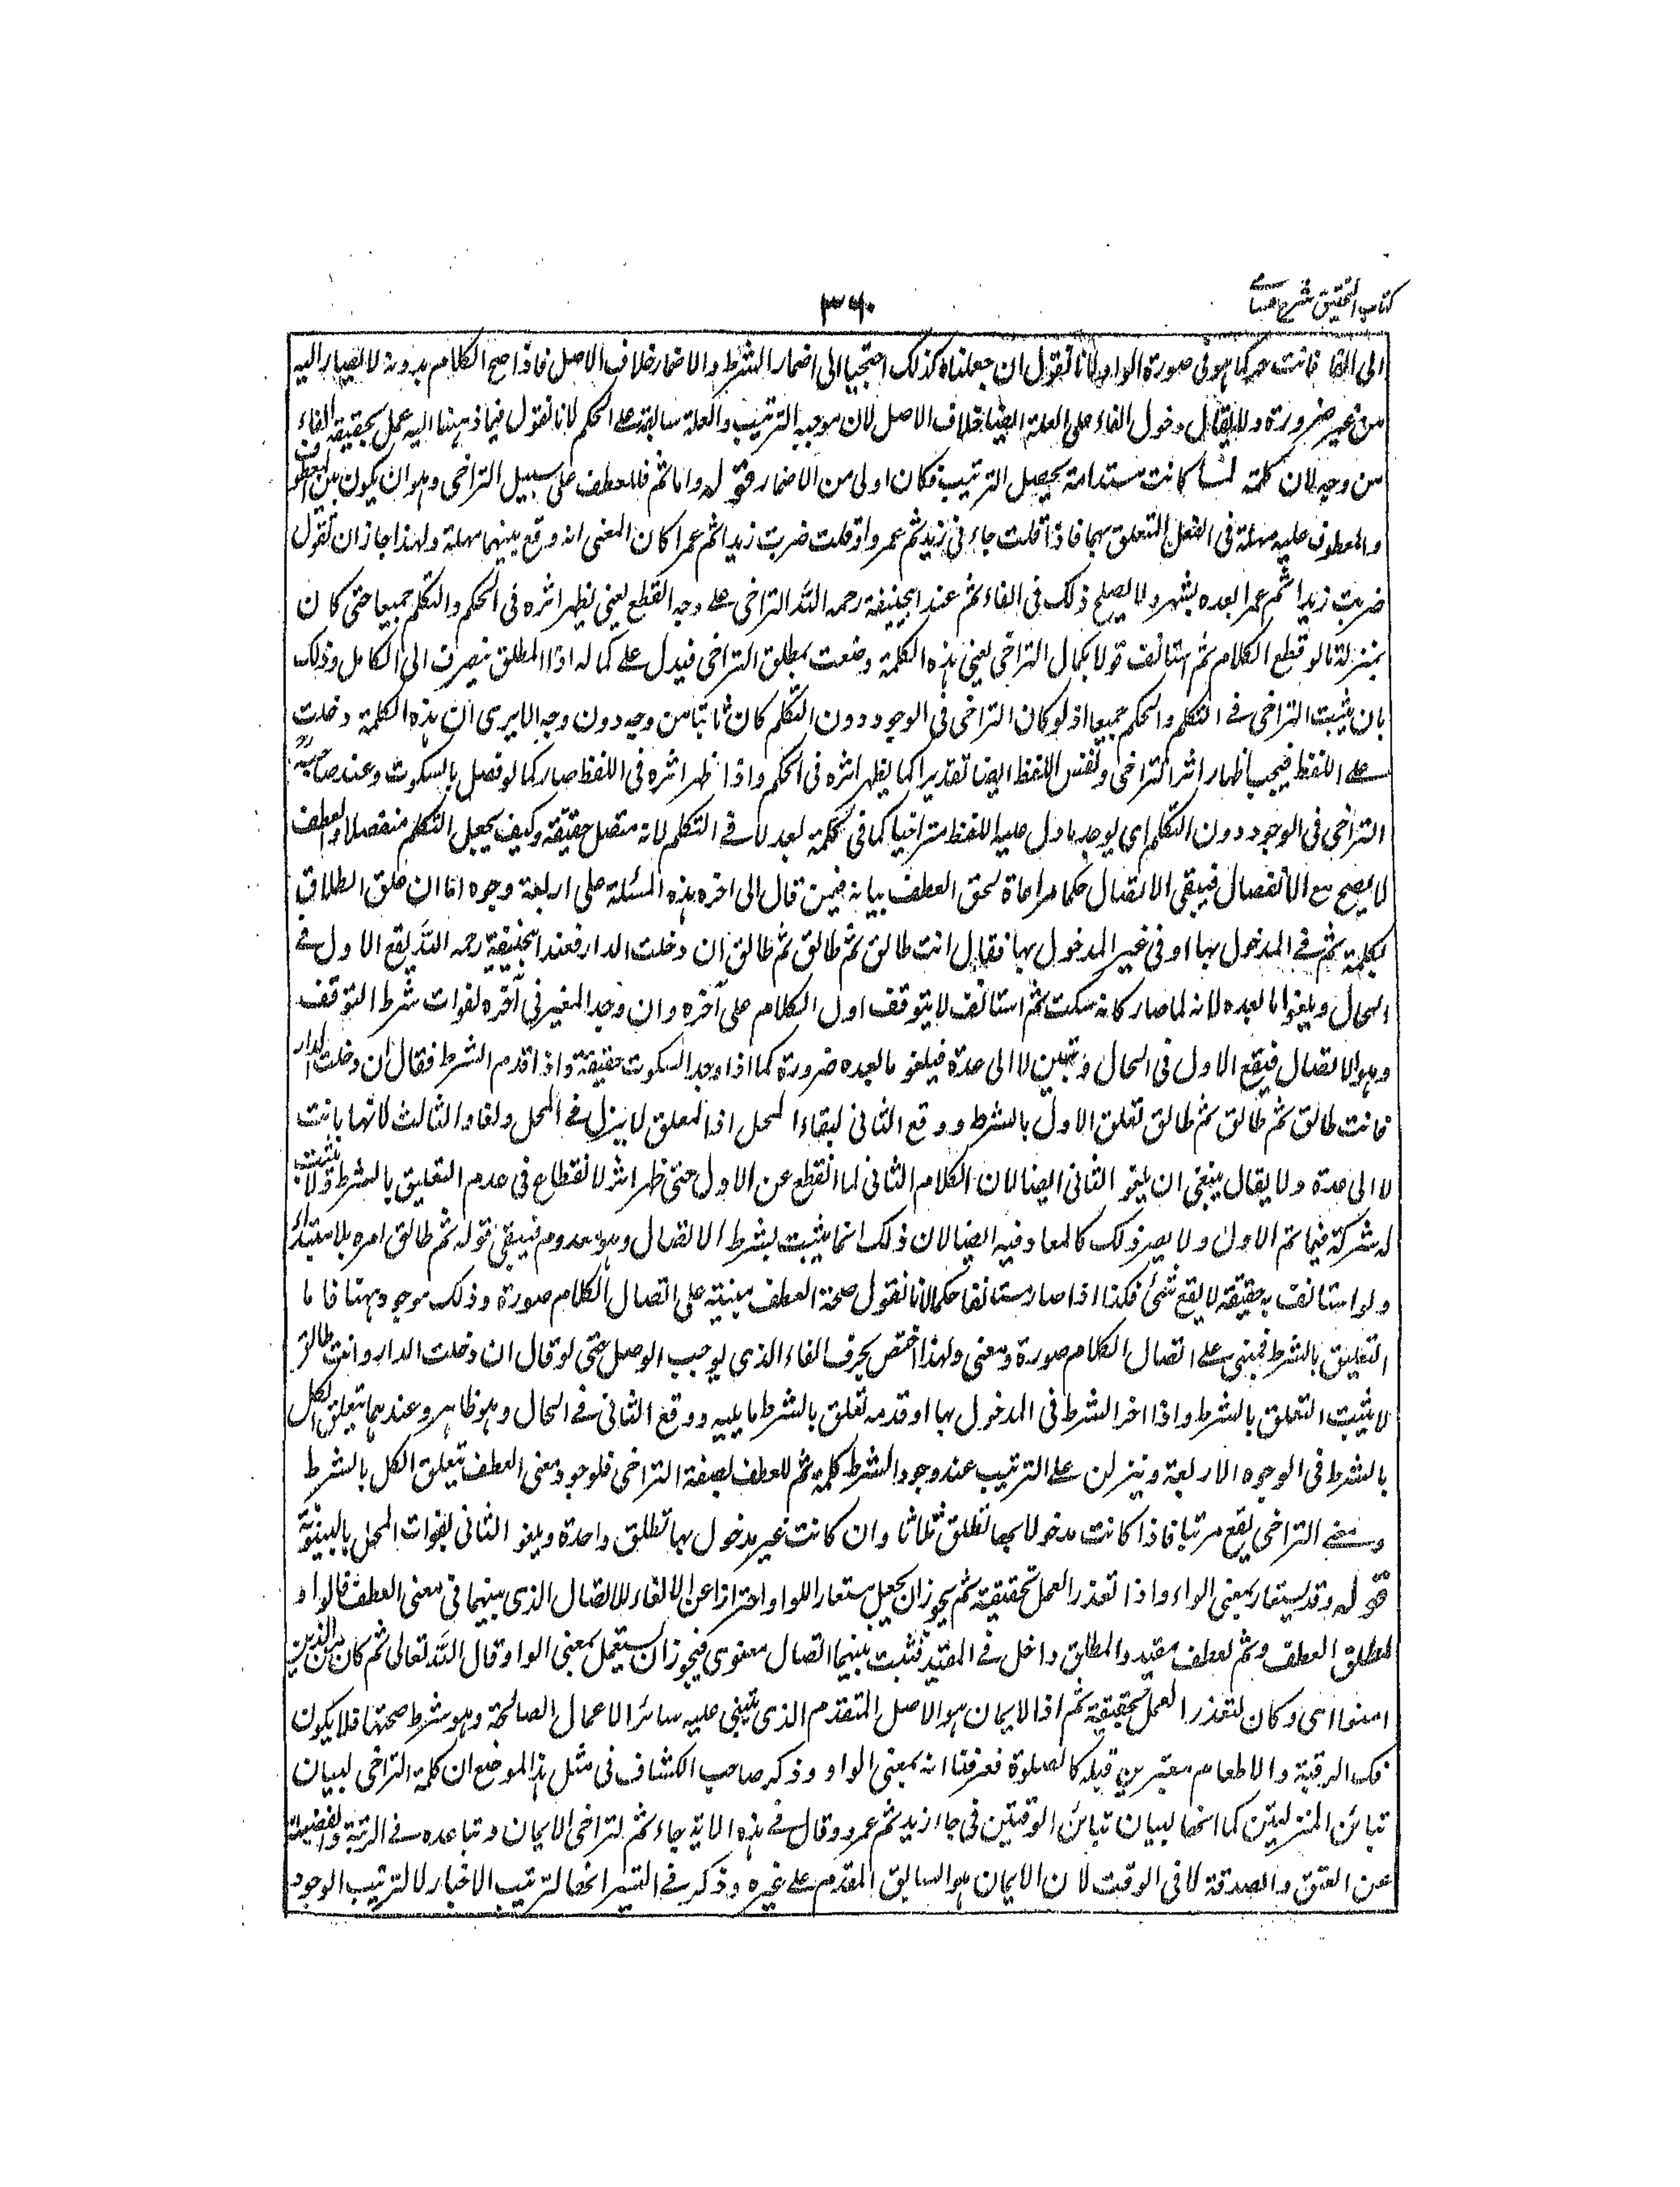 كتاب التحقيق شرح حسامى
٣٦٠
الى الفا فانت حر كما هو فى صورة الواو لانا نقول ان جعلناه كذلك احتجنا الى اضمار الشرط والاضمار خلاف الاصل فاذا صح الكلام بدونه لا يصار اليه
من غير ضرورة ولا يقال دخول الفاء على العلة ايضا خلاف الاصل لان موجبه الترتيب والعلة سابقة على الحكم لانا نقول فيما ذهبنا اليه عمل بحقيقة الفاء
من وجه لان كلمة لما كانت مستدامة يحصل الترتيب فكان اولى من الاضمار قوله واما ثم فللعطف على سبيل التراخى وهو ان يكون بين المعطوف
والمعطوف عليه مهلة فى الفعل المتعلق بهما فاذا قلت جاءنى زيد ثم عمرو او قلت ضربت زيدا ثم عمرا كان المعنى انه وقع بينهما مهلة ولهذا جاز ان تقول
ضربت زيدا ثم عمرا بعده بشهر ولا يصلح ذلك فى الفاء ثم عند ابيحنيفة رحمه الله التراخى على وجه القطع يعنى يظهر اثره فى الحكم والتكلم جميعا حتى كان
بمنزلة ما لو قطع الكلام ثم استانف قولا بكمال التراخى يعنى هذه الكلمة وضعت لمطلق التراخى فيدل على كماله اذ المطلق ينصرف الى الكامل وذلك
بان يثبت التراخى فى التكلم والحكم جميعا اذ لو كان التراخى فى الوجود دون التكلم كان ثابتا من وجه دون وجه الا يرى ان هذه الكلمة دخلت
على اللفظ فيجب اظهار اثر التراخى فى نفس اللفظ ايضا تقديرا كما يظهر اثره فى الحكم واذا ظهر اثره فى اللفظ صار كما لو فصل بالسكوت وعند صاحبيه
التراخى فى الوجود دون التكلم اى يوجد ما دل عليه اللفظ متراخيا كما فى كلمة بعد لا فى التكلم لانه متصل حقيقة وكيف يجعل التكلم منفصلا والعطف
لا يصح مع الانفصال فيبقى الاتصال حكما مراعاة لحق العطف بيانه فيمن قال الى اخره هذه المسئلة على اربعة وجوه اما ان علق الطلاق
بكلمة ثم فى المدخول بها او فى غير المدخول بها فقال انت طالق ثم طالق ثم طالق ان دخلت الدار فعند ابيحنيفة رحمه الله يقع الاول فى
الحال ويلغو ما بعده لانه لما صار كانه سكت ثم استانف لا يتوقف اول الكلام على آخره وان وجد المغير فى آخره لفوات شرط التوقف
وهو الاتصال فيقع الاول فى الحال وتبين لا الى عدة فيلغو ما بعده ضرورة كما اذا وجد السكوت حقيقة واذا قدم الشرط فقال ان دخلت الدار
فانت طالق ثم طالق ثم طالق تعلق الاول بالشرط ووقع الثانى لبقاء المحل اذ المعلق لا ينزل فى المحل ولغا والثالث لانها بانت
لا الى عدة ولا يقال ينبغى ان يلغو الثانى ايضا لان الكلام الثانى لما انقطع عن الاول حتى ظهر اثر الانقطاع فى عدم التعليق بالشرط ولا يثبت
له شركة فيما تم الاول ولا يصير ذلك كالمعاد فيه ايضا لان ذلك انما يثبت بشرط الاتصال وهو معدوم فيبقى قوله ثم طالق امره بلا مبتداء
ولو استانف به حقيقة لا يقع شئ فكذا اذا صار مستانفا حكما لانا نقول صحة العطف مبنية على اتصال الكلام صورة وذلك موجود ههنا فاما
التعليق بالشرط فمبنى على اتصال الكلام صورة ومعنى ولهذا اختص بحرف الفاء الذى يوجب الوصل حتى لو قال ان دخلت الدار وانت طالق
لا يثبت التعلق بالشرط واذا اخر الشرط فى المدخول بها او قدمه تعلق بالشرط ما يليه ووقع الثانى فى الحال وهو ظاهر وعندهما يتعلق الكل
بالشرط فى الوجوه الاربعة وينزلن على الترتيب عند وجود الشرط كلمة ثم للعطف بصفة التراخى فلوجود معنى العطف تعلق الكل بالشرط
ومعنى التراخى يقع مرتبا فاذا كانت مدخولا بها تطلق ثلاثا وان كانت غير مدخول بها تطلق واحدة ويلغو الثانى لفوات المحل بالبينونة
قوله وقد يستعار بمعنى الواو واذا تعذر العمل بحقيقة ثم يجوز ان يجعل مستعار اللواو احترازا عن الالغاء للاتصال الذى بينهما فى معنى العطف فالواو
لمطلق العطف وثم لعطف مقيد والمطلق داخل فى المقيد فثبت بينهما اتصال معنوى فيجوز ان يستعمل بمعنى الواو قال الله تعالى ثم كان من الذين
امنوا اى وكان لتعذر العمل بحقيقة ثم اذ الايمان هو الاصل المتقدم الذى يبتنى عليه سائر الاعمال الصالحة وهو شرط صحتها فلا يكون
فك الرقبة والاطعام معتبرين قبله كالصلوة فعرفنا انه بمعنى الواو وذكر صاحب الكشاف فى مثل هذا الموضع ان كلمة التراخى لبيان
تباين المنزلتين كما انها لبيان تباين الوقتين فى جاء زيد ثم عمرو وقال فى هذه الاية جاء ثم لتراخى الايمان وتباعده فى الرتبة والفضيلة
عن العتق والصدقة لا فى الوقت لان الايمان هو السابق المقدم على غيره وذكر فى التيسير انها لترتيب الاخبار لا لترتيب الوجود